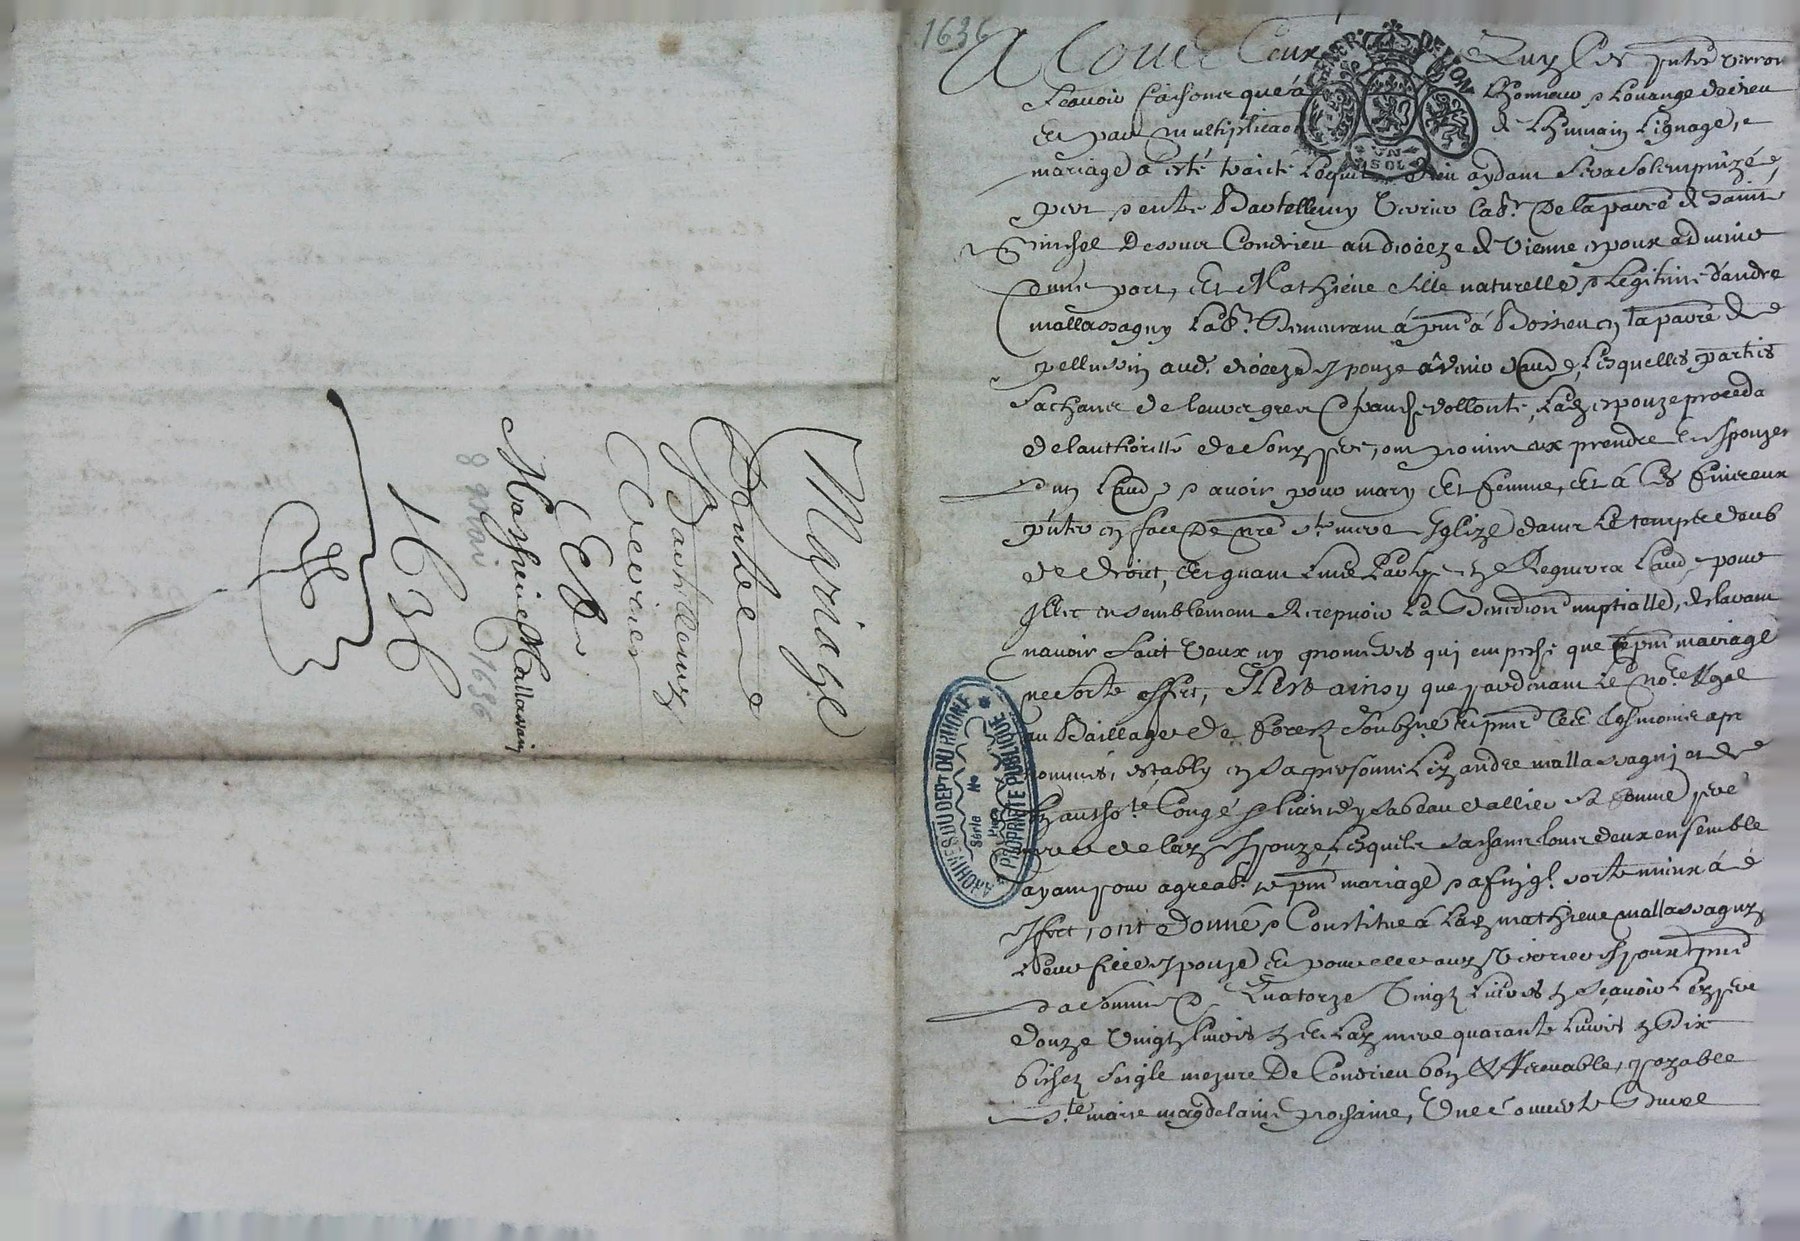 Mariage
d'entre
Barthellemy
Verrier
Et
Mathieue Mallassaigny
8 1636
1636
1636
A Tous Ceux Quy Ces pntes verront
Scavoir faisons que á Lhonneur & Louange de dieu
Et par multiplicaon de Lhumain Lignage,
mariage a esté traicté Lequel dieu aydant Sera Solempnizé
par & entre Bartellemy Verrier labr De la parre de Saint
Michel dessus Condrieu au dioceze de Vienne espoux advenir
dune part, Et Mathieue fille naturelle & Legitime d'andre
mallassagny labr demeurant á pnt á Boissieu en la parre de
pellussin aud. dioceze Espouze advenir dautre, Lesquelles parties
Sachant de leurs grez & franche vollonté, Lad espouze procedant
de lauthorité de Son pere, ont promis eux prendre et Espouzer
Lun Lautre & avoir pour mary Et femme, Et á ces fins eux
pnter en face De nre Ste mere Esglize dans Le temps de
de droict, Et quand Lune partye en Requerra Lautre pour
Illec ensemblement Recepvoir La Benediction nuptialle, declarant
n'avoir faict Veux ny promesses qui empesche que le pnt mariage
ne sorte effect, Il est ainsy que pardevant le Nore Royal
au Bailliage de forez Soubzne Et pnt Ces tesmoins apres
nommés, estably en Sa personne Led andre mallassagny et de
Son auctho.té Congé & licence ysabeau dallier Sa femme pere
mere de lad Espouze, Lesquels Sachant tous deux ensemble
ayant pour agreab. le pnt mariage & afin ql. sorte mieux á
Effect, ont donné & Constitué á Lad mathieue mallassagny
Leur fille Espouze Et pour elle aud Verrier Espoux pnt
La Somme de Quatorze Vingt Livres Scavoir Led pere
douze Vingt livres Et Lad mere quarante Livres Dix
bichez Seigle mezure De Condrieu bon & Recevable, payable
Ste marie magdelaine prochaine, Une couverte
GENER. DE LION
UN SOL
ARCHIVES DU DEPT DU RHONE
Série
No
PROPRIÉTÉ PUBLIQUE